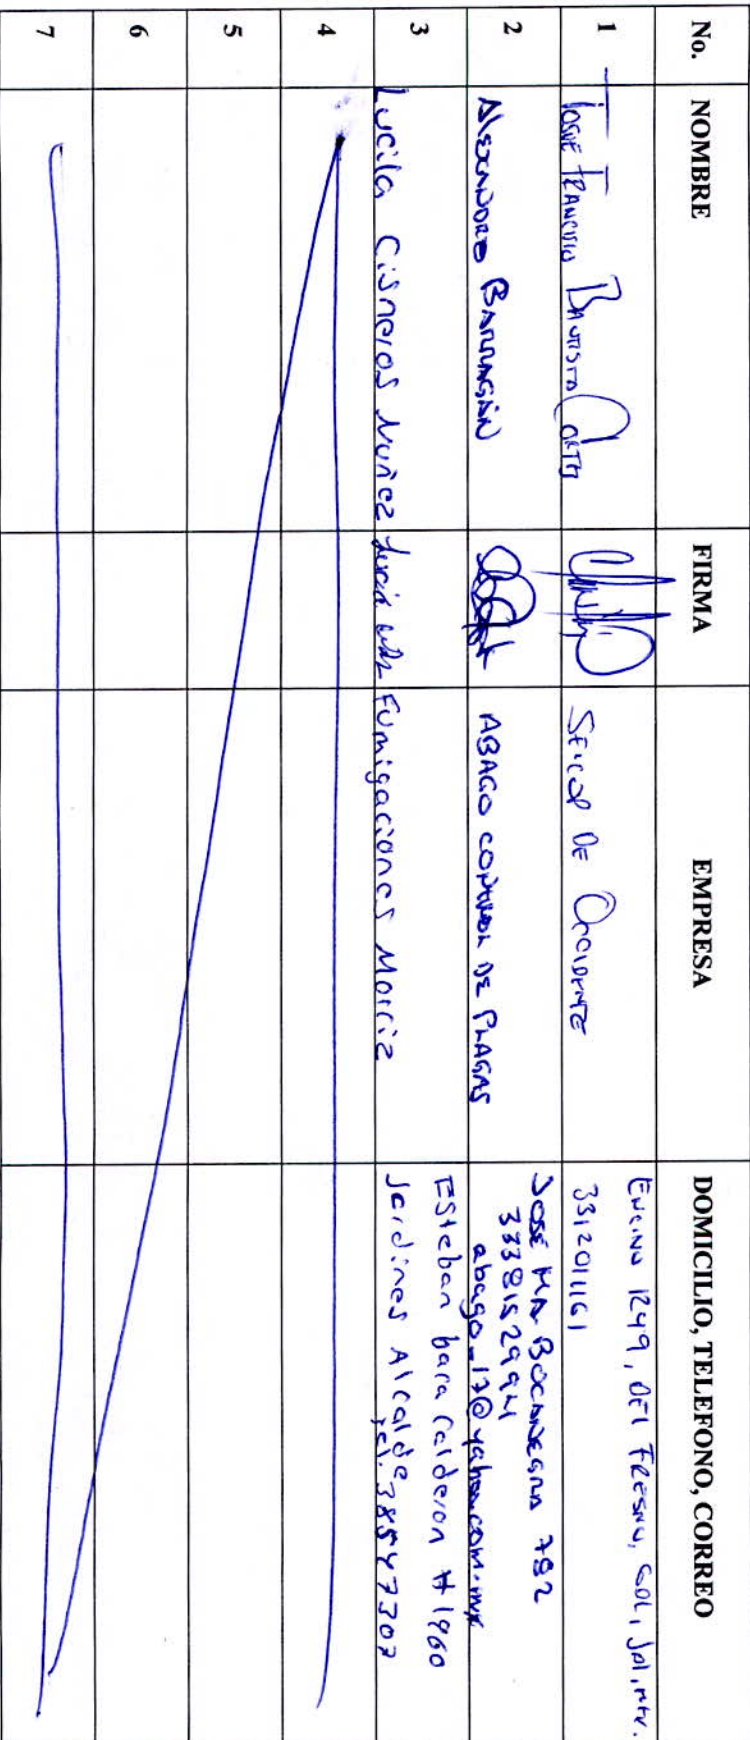 No. NOMBRE FIRMA EMPRESA DOMICILIO, TELEFONO, CORREO
1 Josue Francisco Bautista Ortiz SEICOP DE OCCIDENTE
Encino 1249, Del Fresno, GDL, Jal, Mex.
3312011161
2 Alexandro Barragán ABAGO CONTROL DE PLAGAS
José Ma Bocanegra 782
3338152994
abago_17@yahoo.com.mx
3 Lucila Cisneros Nuñez Fumigaciones Morriz
Esteban bara Calderon #1960
Jardines Alcalde
Tel. 38547307
4
5
6
7